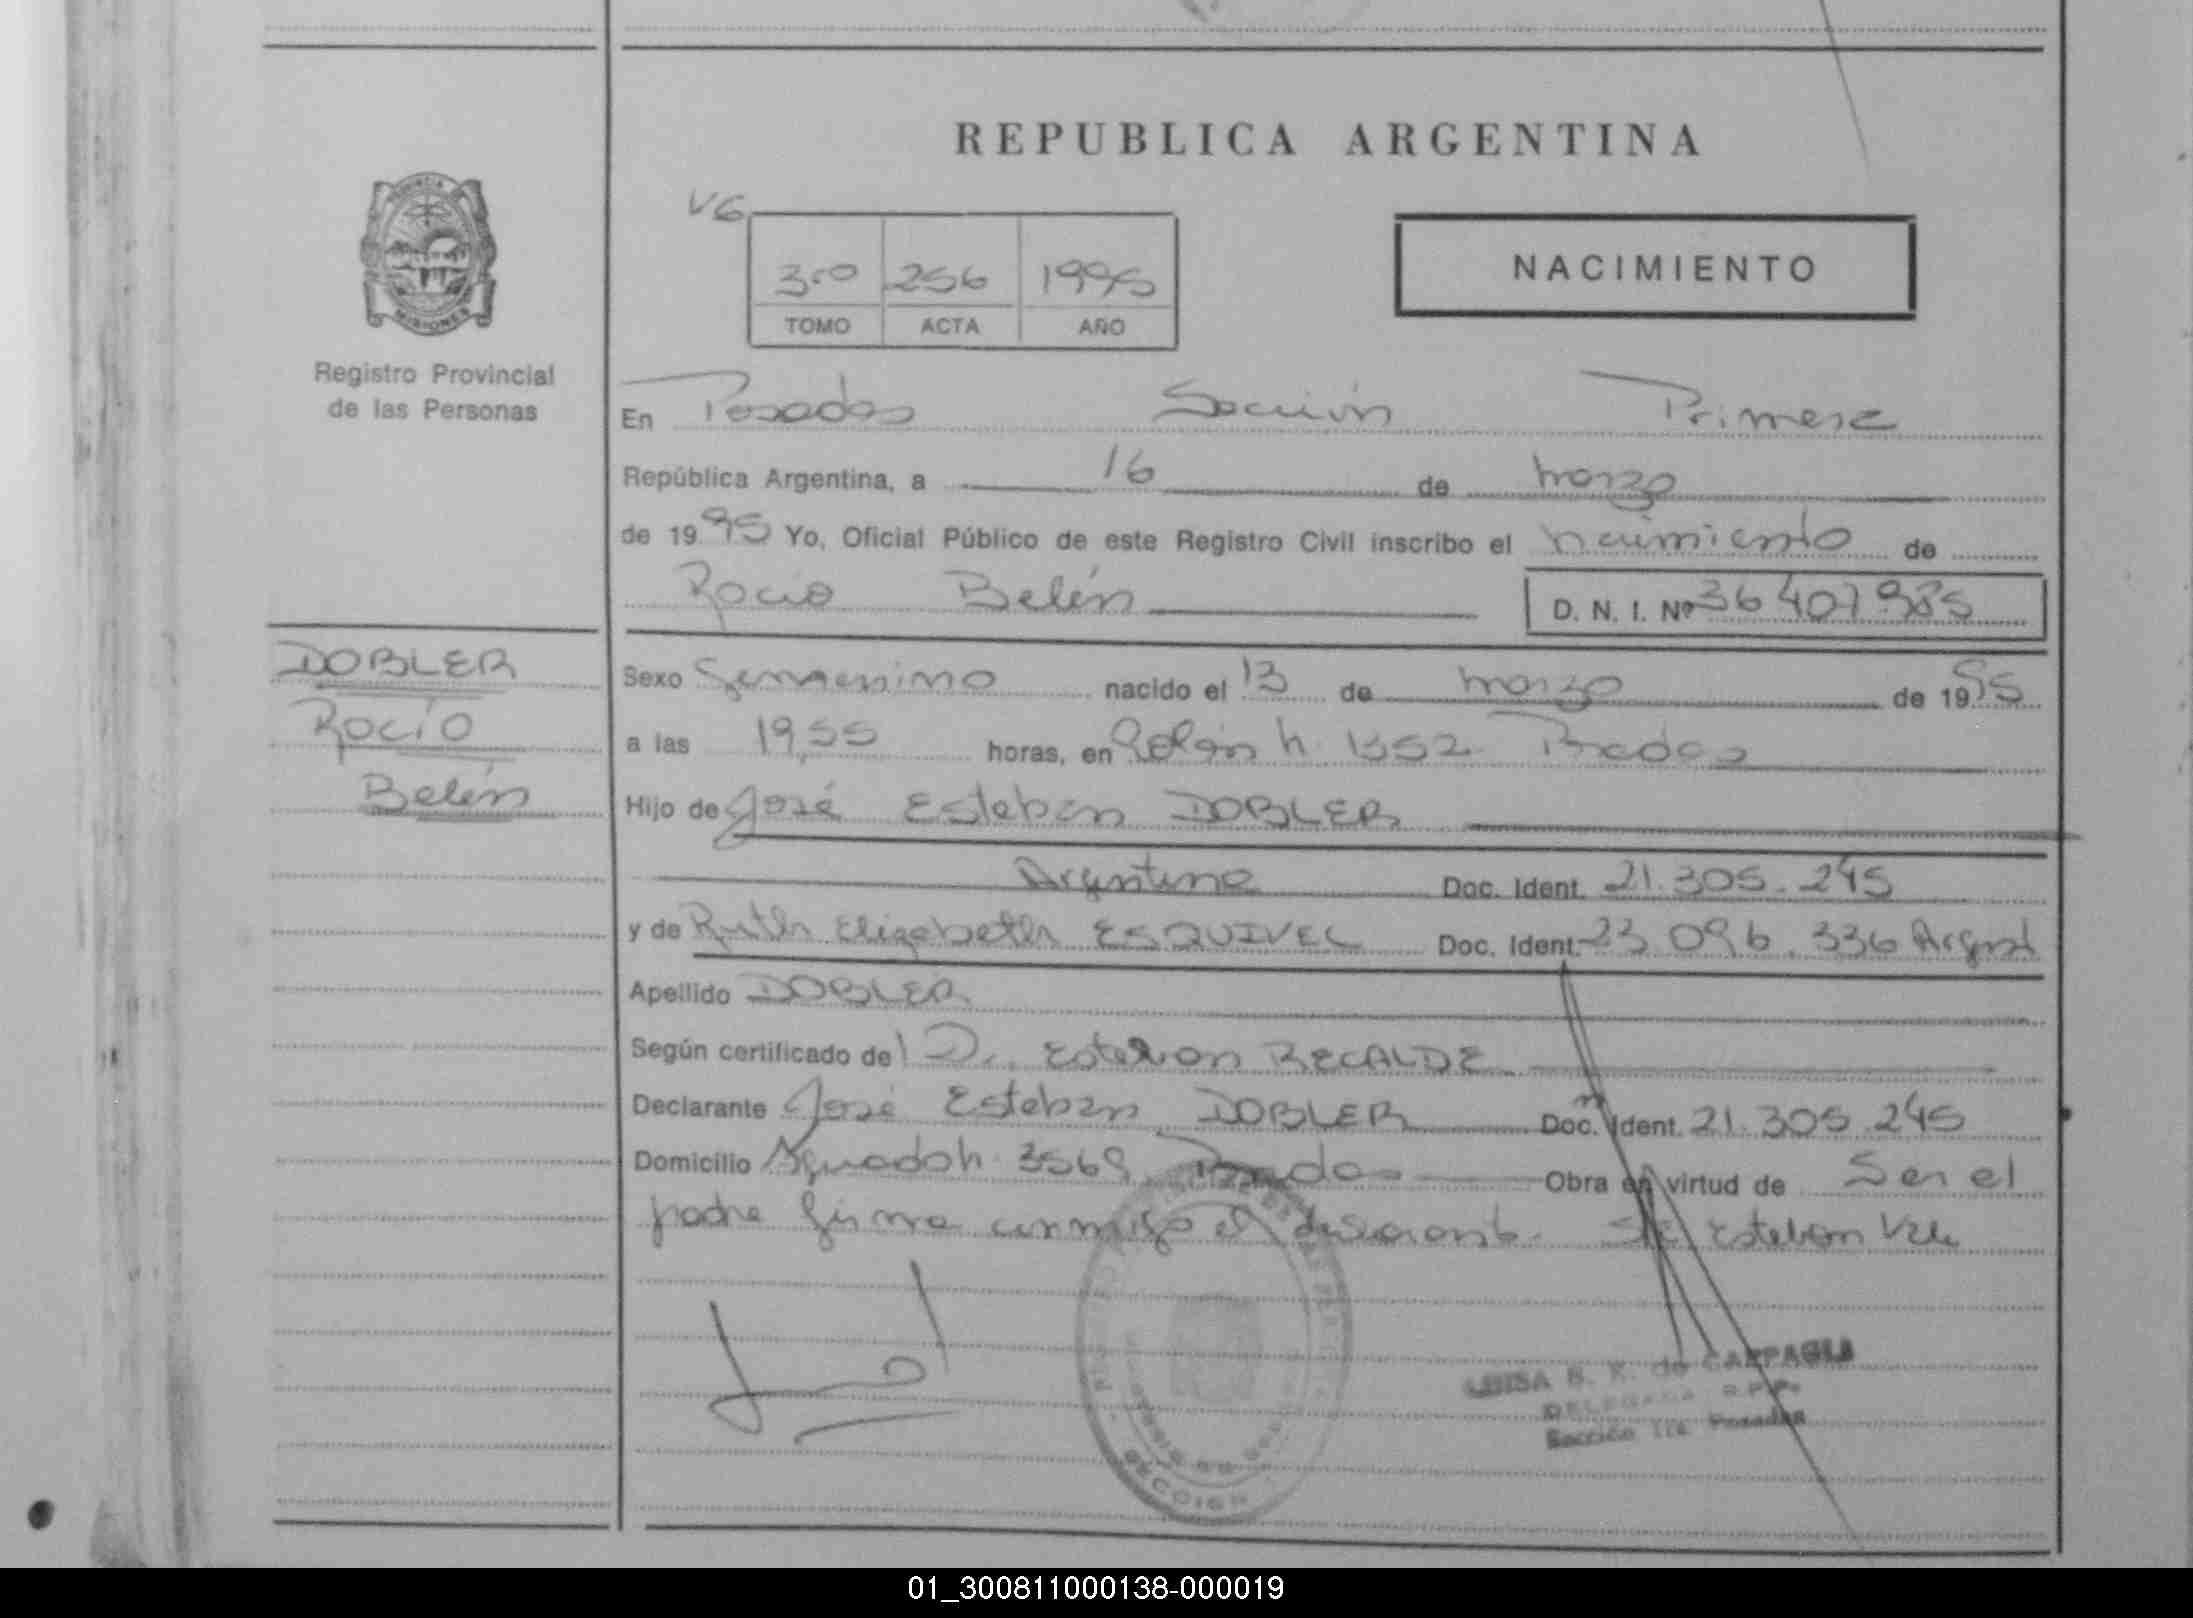 REPUBLICA ARGENTINA
V6
3ro 256 1995
TOMO ACTA AÑO
NACIMIENTO
PROVINCIA
MISIONES
Registro Provincial
de las Personas
En Posadas Sección Primera
República Argentina, a 16 de marzo
de 1995 Yo, Oficial Público de este Registro Civil inscribo el nacimiento de
Rocio Belén D. N. I. Nº 36407985
DOBLER
Rocío
Belén
Sexo Femenino nacido el 13 de marzo de 1995
a las 19,55 horas, en Colón h. 1352 Posadas
Hijo de José Esteban DOBLER
Argentino Doc. Ident. 21.305.245
y de Ruth Elizabeth ESQUIVEL Doc. Ident. 23 096.336 Argent
Apellido DOBLER
Según certificado de Dr. Esteban RECALDE
Declarante José Esteban DOBLER Doc. Ident. 21.305.245
Domicilio 3569 Posadas Obra en virtud de Ser el
padre firma conmigo el declarante. Esteban Vale
LUISA B. K. de CAPPAGLI
DELEGADA R.P.P.
Sección 1ra. Posadas
SECCION
01_300811000138-000019